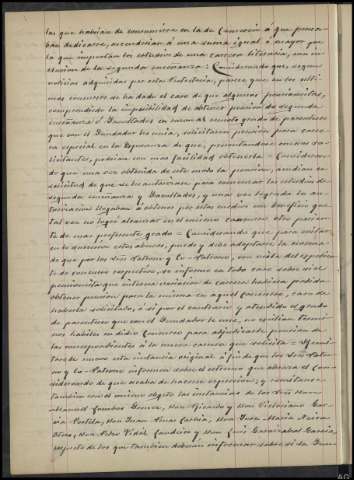 los que habían de consumirse en la de Comercio á que pensa-
ban dedicarse, ascenderían á una suma igual ó mayor
que importan los estudios de una carrera literaria, con in-
clusión de la segunda enseñanza: Considerando que, según
noticias adquiridas por este Protectorio, parece que en los últi-
mos concursos se ha dado el caso de que algunos pensionistas,
comprendiendo la imposibilidad de obtener pensión de segunda
enseñanza ó Facultades en razón al remoto grado de parentesco
que con el Fundador les unía, solicitaron pensión para carre-
ra especial en la esperanza de que, presentándose menos so-
licitantes, podrían con mas facilidad obtenerla = Consideran-
do que una vez obtenida de este modo la pensión, acudían en
solicitud de que se les autorizase para conmutar los estudios de
segunda enseñanza y Facultades, y una vez lograda la au-
torización llegaban á obtener por este medio un beneficio que
tal vez no logró alcanzar en el mismo concurso otro parien-
te de mas preferente grado = Considerando que para evitar
en lo sucesivo estos abusos, puede y debe adoptarse la norma
de que por los Sres Patrono y Co-Patrono, con vista del expedien-
te de concurso respectivo, se informe en todo caso sobre si el
pensionista que intenta variación de carrera hubiera podido
obtener pensión para la misma en aquel concurso, caso de
haberla solicitado, ó si por el contrario y atendido el grado
de parentesco que con el Fundador le unía, no existían térmi-
nos hábiles en dicho Concurso para adjudicarle pensión de
las correspondientes á la nueva carrera que solicita = Remi-
tase de nuevo esta instancia original á fin de que los Sres Patro-
no y Co-Patrono informen sobre el extremo que abraza el Con-
siderando de que acaba de hacerse expresión; y remítanse
también con el mismo objeto las instancias de los Sres Don
Manuel Gamboa Donoso, Don Ricardo y Don Victoriano Gar-
cía Portela, Don Juan
Otero, Don Pedro Vidal y Don Luis García,
respecto de los que también deberán informar sobre si la Fun-